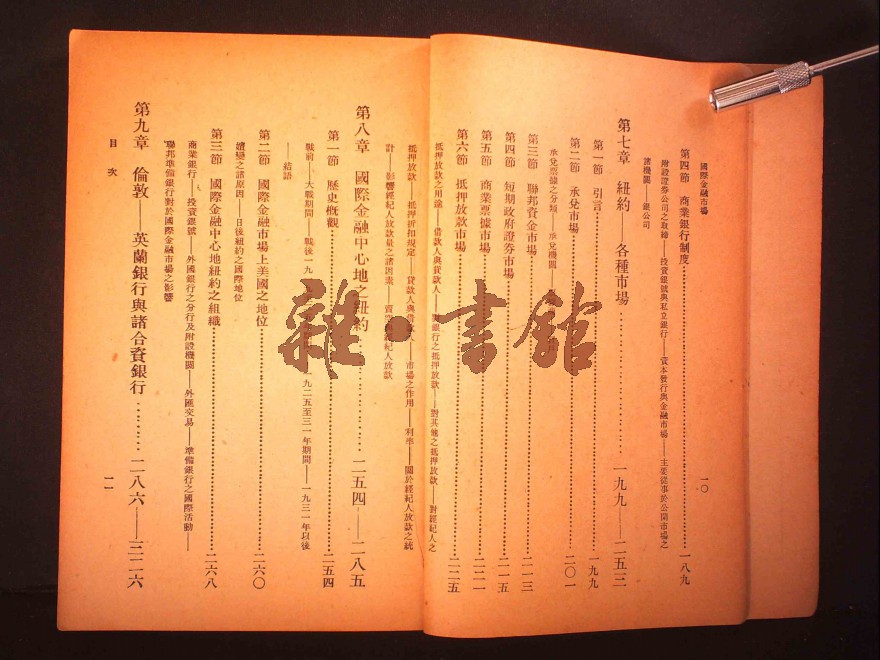 國際金融市場
一〇
第四節 商業銀行制度 一八九
附設證券公司之取締——投資銀號與私立銀行——資本發行與金融市場——主要從事於公開市場之
諸機關——銀公司
第七章 紐約——各種市場 一九九——二五三
第一節 引言 一九九
第二節 承兌市場 二〇一
承兌票據之分類——承兌機關
第三節 聯邦資金市場 二一三
第四節 短期政府證券市場 二一五
第五節 商業票據市場 二二一
第六節 抵押放款市場 二二五
抵押放款之用途——借款人與貸款人——銀行之抵押放款——對其他之抵押放款——對經紀人之
抵押放款——抵押折扣規定——貸款人與借款人——市場之作用——利率——關於經紀人放款之統
計——影響經紀人放款量之諸因素——經紀人放款
第八章 國際金融中心地之紐約 二五四——二八五
第一節 歷史概觀 二五四
戰前——大戰期間——戰後一九 九二五至三一年期間——一九三一年以後
——結語
第二節 國際金融市場上美國之地位 二六〇
嬗變之諸原因——日後紐約之國際地位
第三節 國際金融中心地紐約之組織 二六八
商業銀行——投資銀號——外國銀行之分行及附設機關——外匯交易——準備銀行之國際活動——
聯邦準備銀行對於國際金融市場之影響
第九章 倫敦——英蘭銀行與諸合資銀行 二八六——三二六
目次
一一
雜·書館